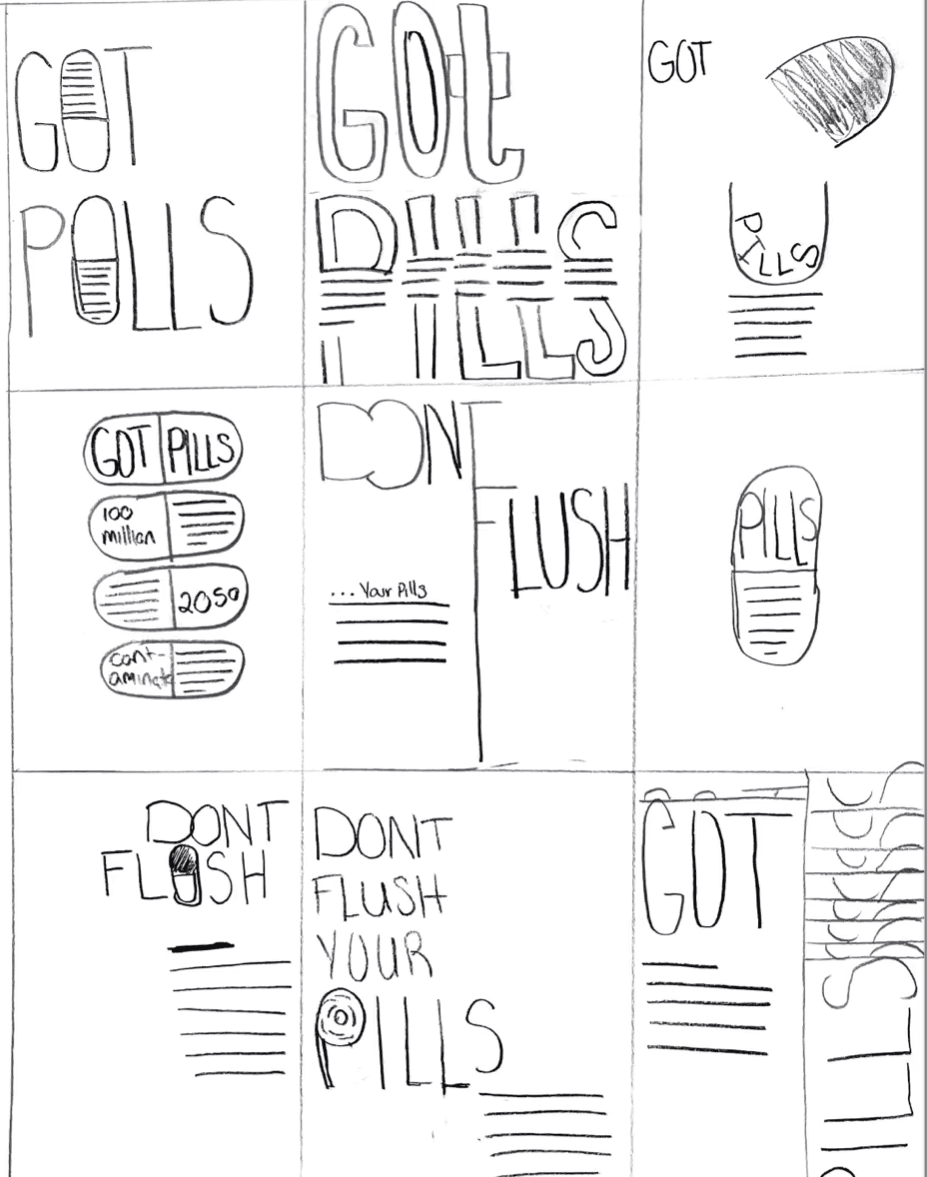 GOT
PILLS
GOt
PILLS
GOT
PILLS
GOT PILLS
100
million
2050
cont-
aminate
DONT
FLUSH
... Your Pills
PILLS
DONT
FLUSH
DONT
FLUSH
YOUR
PILLS
GOT
PILLS